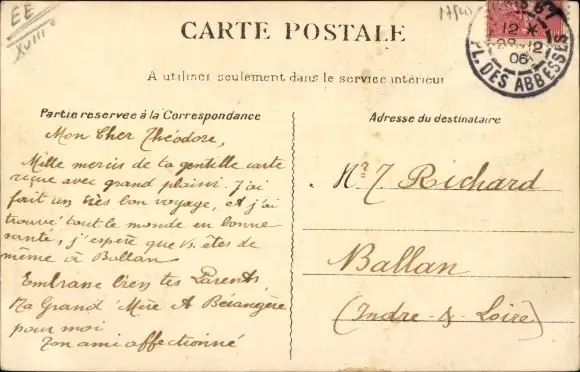 EE
XVIII
CARTE POSTALE
A utiliser seulement dans le service intérieur
12 *
12
06
PL. DES ABBESSES
Partie reservée à la Correspondance
Adresse du destinataire
Mon Cher Théodore,
Mille mercis de ta gentille carte
reçue avec grand plaisir. J'ai
fait un très bon voyage, et j'ai
trouvé tout le monde en bonne
santé, j'espère que vs. êtes de
même à Ballan
Embrasse bien tes Parents,
Ta Grand'Mère et Bérangère
pour moi
Ton ami affectionné
Mr T. Richard
Ballan
(Indre-&-Loire)